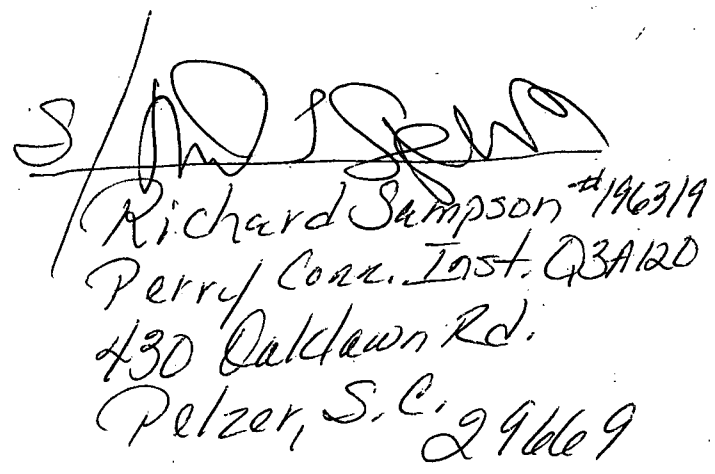 S/
Richard Sampson #196319
Perry Corr. Inst. Q3A120
430 Oaklawn Rd.
Pelzer, S.C. 29669